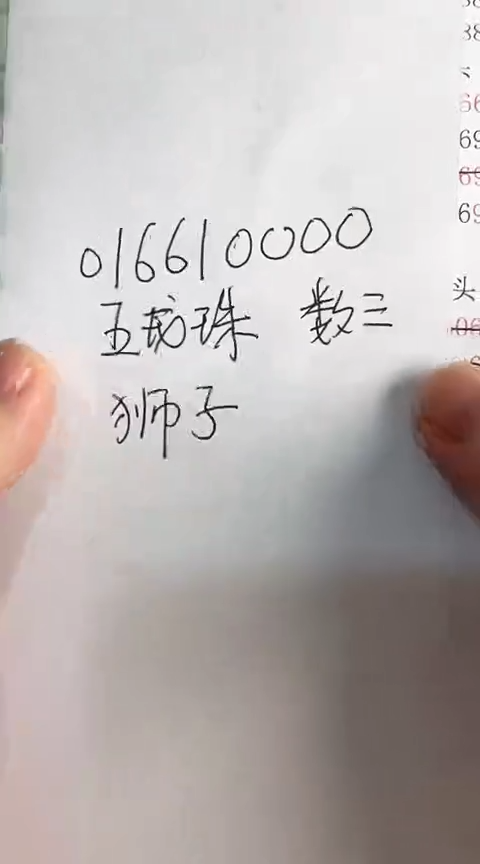 66
69
69
69
016610000
五龙珠 数三
头
06
狮子